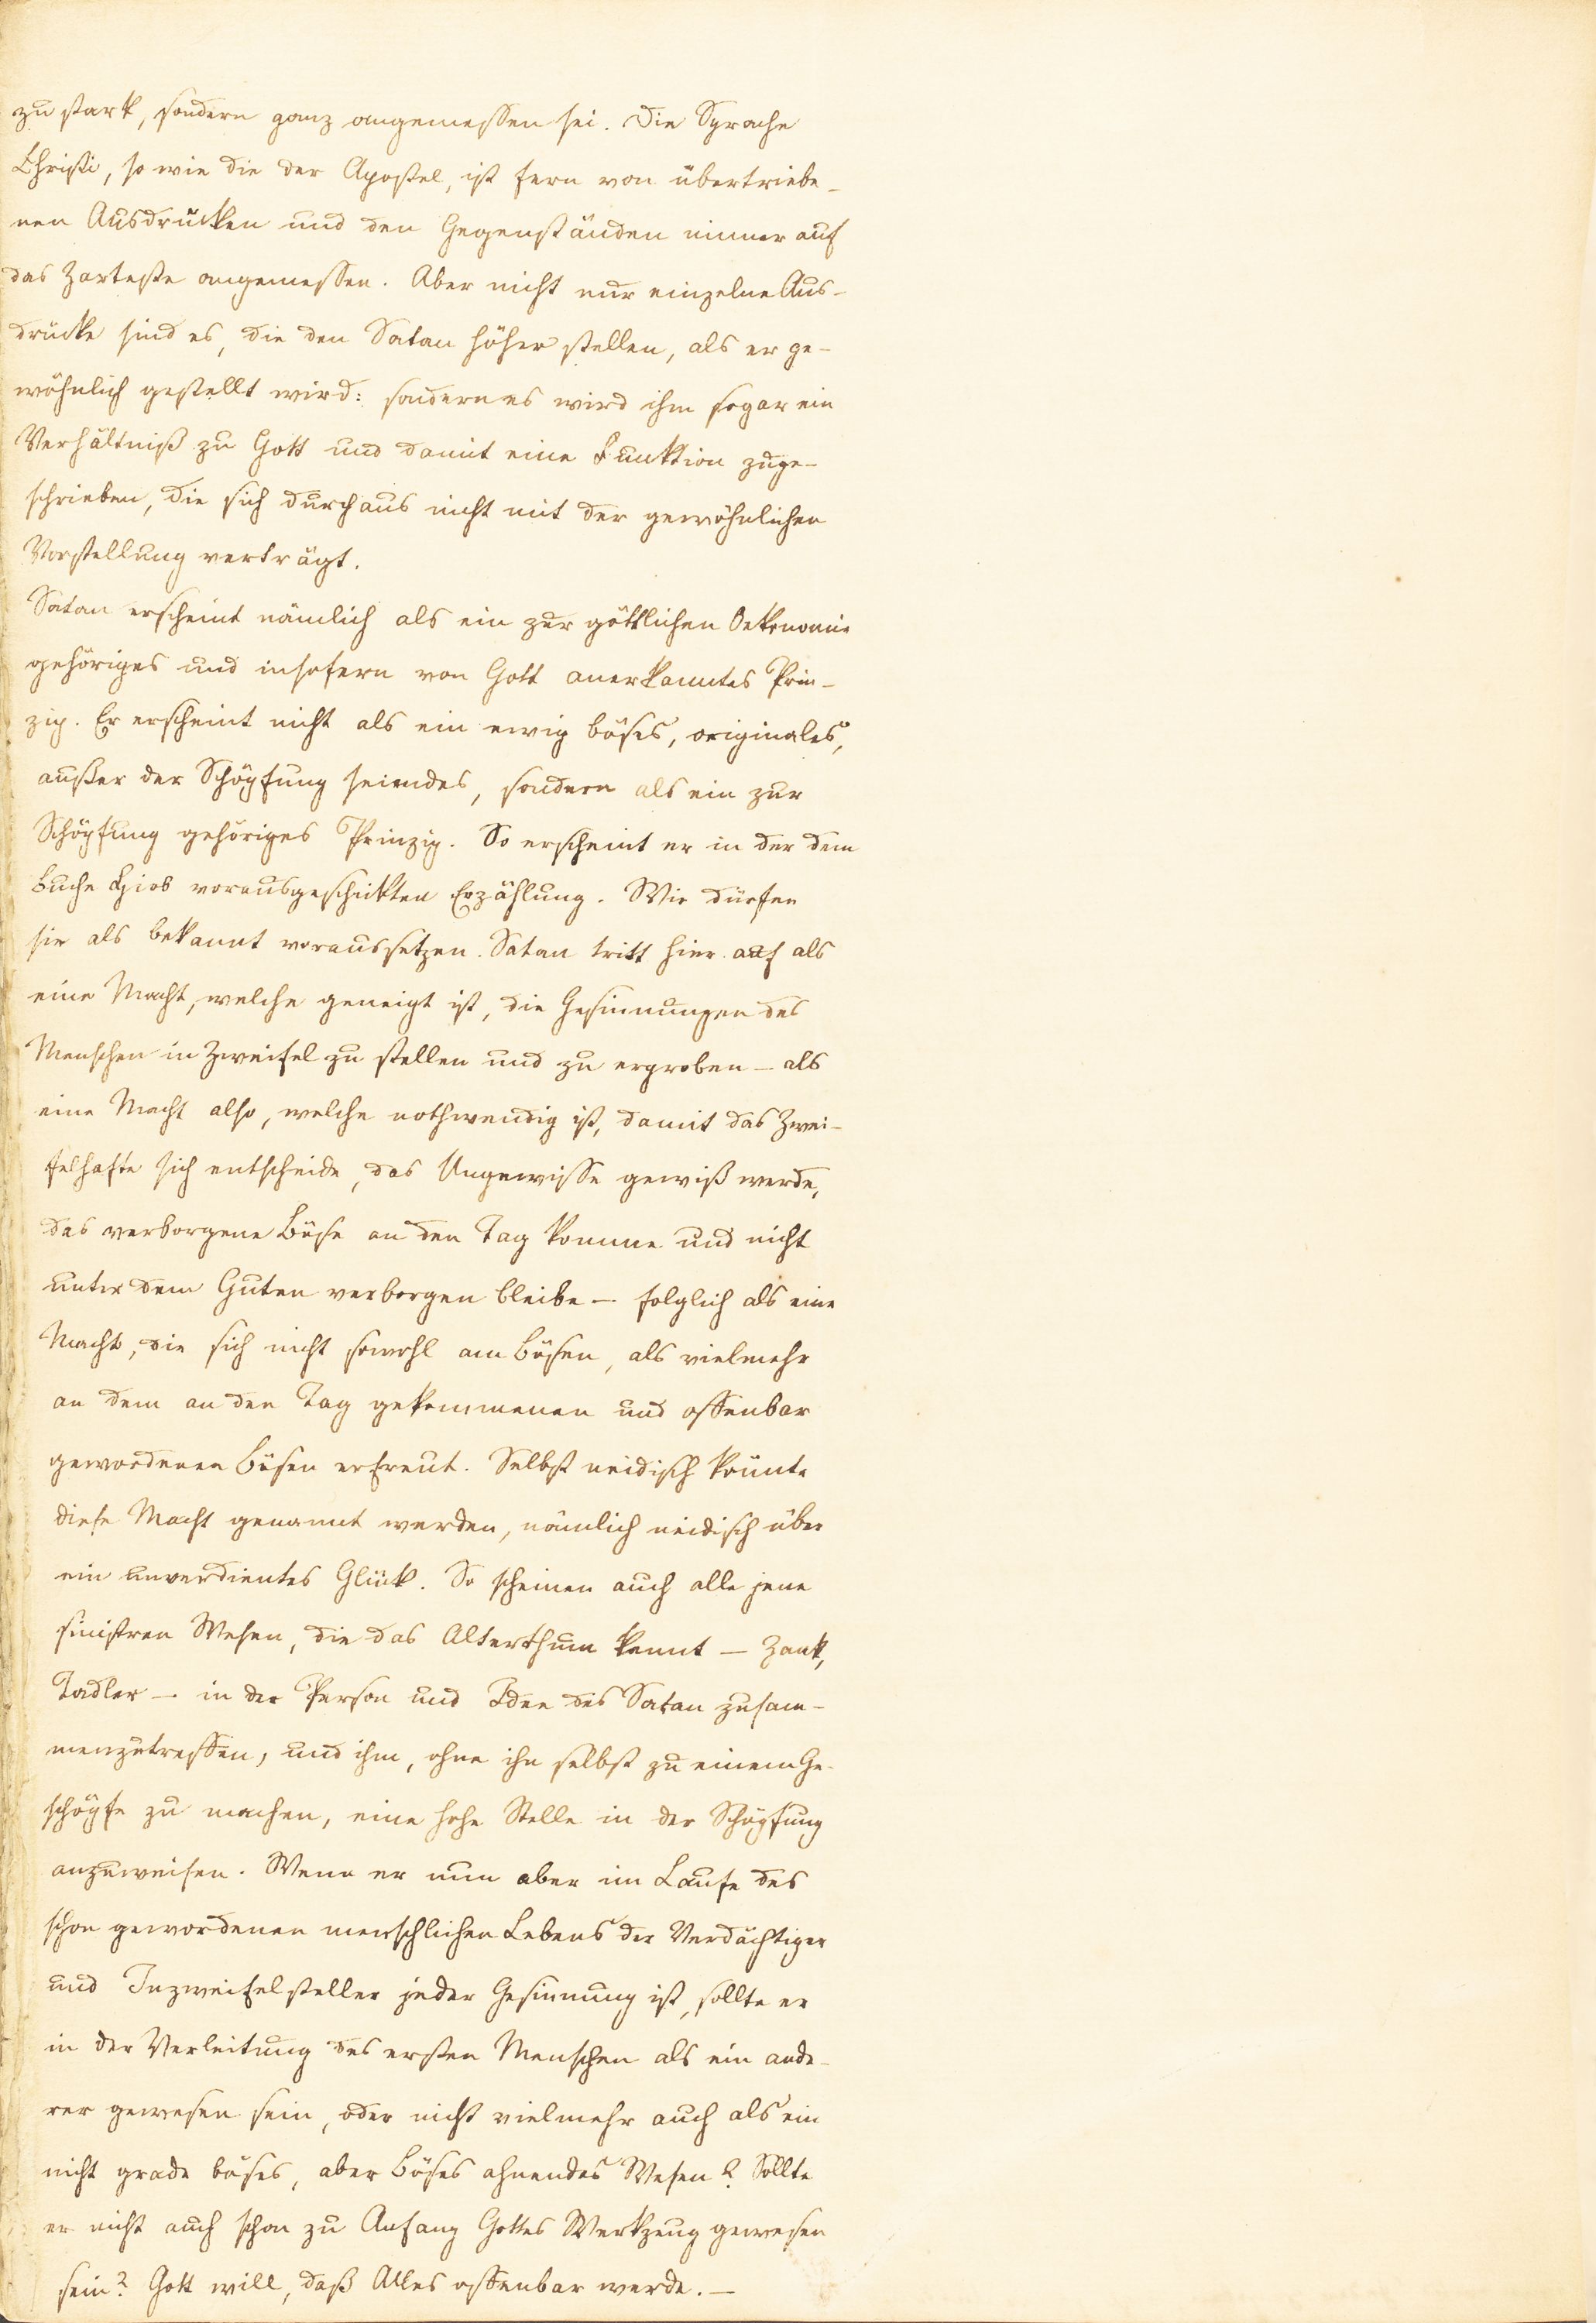 zu stark, sondern ganz angemessen sei. Die Sprache
Christi, so wie die der Apostel, ist fern von übertriebe-
nen Ausdrücken und den Gegenständen immer auf
das Zarteste angemessen. Aber nicht nur einzelne Aus-
drücke sind es, die den Satan höher stellen, als er ge-
wöhnlich gestellt wird: sondern es wird ihm sogar ein
Verhältniß zu Gott und damit eine Funktion zuge-
schrieben, die sich durchaus nicht mit der gewöhnlichen
Vorstellung verträgt.
Satan erscheint nämlich als ein zur göttlichen Oekonomie
gehöriges und insofern von Gott anerkanntes Prin-
zip. Er erscheint nicht als ein ewig böses, originales,
außer der Schöpfung seiendes, sondern als ein zur
Schöpfung gehöriges Prinzip. So erscheint er in der dem
Buche Hiob vorausgeschickten Erzählung. Wir dürfen
sie als bekannt voraussetzen. Satan tritt hier auf als
eine Macht, welche geneigt ist, die Gesinnungen des
Menschen in Zweifel zu stellen und zu erproben – als
eine Macht also, welche nothwendig ist, damit das Zwei-
felhafte sich entscheide, das Ungewisse gewiß werde,
das verborgene Böse an den Tag komme und nicht
unter dem Guten verborgen bleibe – folglich als eine
Macht, die sich nicht sowohl am Bösen, als vielmehr
an dem an den Tag gekommenen und offenbar
gewordenen Bösen erfreut. Selbst neidisch könnte
diese Macht genannt werden, nämlich neidisch über
ein unverdientes Glück. So scheinen auch alle jene
sinistren Wesen, die das Alterthum kennt – Zank,
Tadler – in der Person und Idee des Satan zusam-
menzutreffen, und ihm, ohne ihn selbst zu einem Ge-
schöpfe zu machen, eine hohe Stelle in der Schöpfung
anzuweisen. Wenn er nun aber im Laufe des
schon gewordenen menschlichen Lebens der Verdächtiger
und Inzweifelsteller jeder Gesinnung ist, sollte er
in der Verleitung des ersten Menschen als ein ande-
rer gewesen sein, oder nicht vielmehr auch als ein
nicht grade böses, aber Böses ahnendes Wesen? Sollte
er nicht auch schon zu Anfang Gottes Werkzeug gewesen
sein? Gott will, daß Alles offenbar werde. –